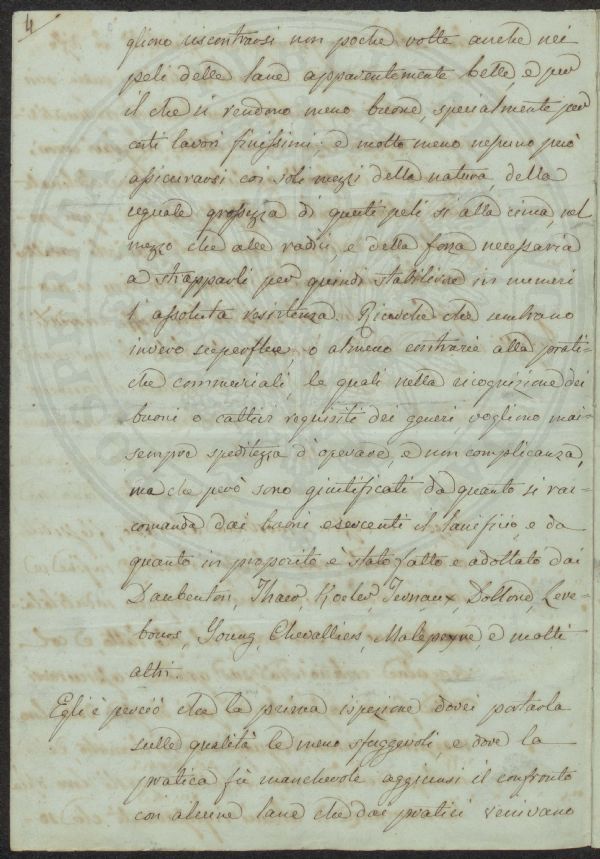 4
gliono riscontrarsi non poche volte anche nei
peli delle lane apparentemente belle, e per
il che si rendono meno buone, specialmente per
certi lavori finissimi; e molto meno nessuno può
assicurarsi coi soli mezzi della natura, della
eguale grossezza di questi peli sì alla cima, nel
mezzo che alle radici, e della forza necessaria
a strapparli per quindi stabilire in numeri
l'assoluta resistenza. Ricerche che sembrano
invero superflue, o almeno contrarie alla prati-
che commerciali, le quali nella ricognizione dei
buoni o cattivi requisiti dei generi, vogliono mai-
sempre speditezza d'operare, e non complicanza,
ma che però sono giustificati da quanto si rac-
comanda dai buoni esercenti il lanificio, e da
quanto in proposito è stato fatto e adottato dai
Daubenton, Thaer, Koeler, Ternaux, Dollond, Lere-
bours, Young, Chevalliers, Malepeyre, e molti
altri.
Egli è perciò che la prima ispezione dovei portarla
sulle qualità le meno sfuggevoli, e dove la
pratica fù manchevole aggiunsi il confronto
con alcune lane che dai pratici venivano